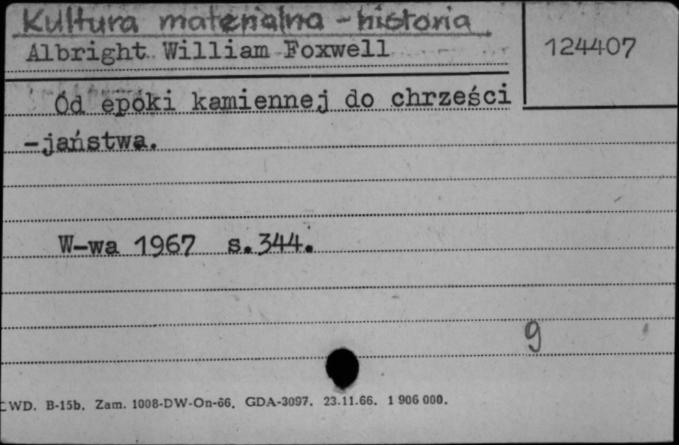 Kultura materialna - historia
Albright William Foxwell
124407
Od epoki kamiennej do chrześci
-jaństwa.
W-wa 1967 s.344.
9
CWD. B-15b. Zam. 1008-DW-On-66. GDA-3097. 23.11.66. 1 906 000.